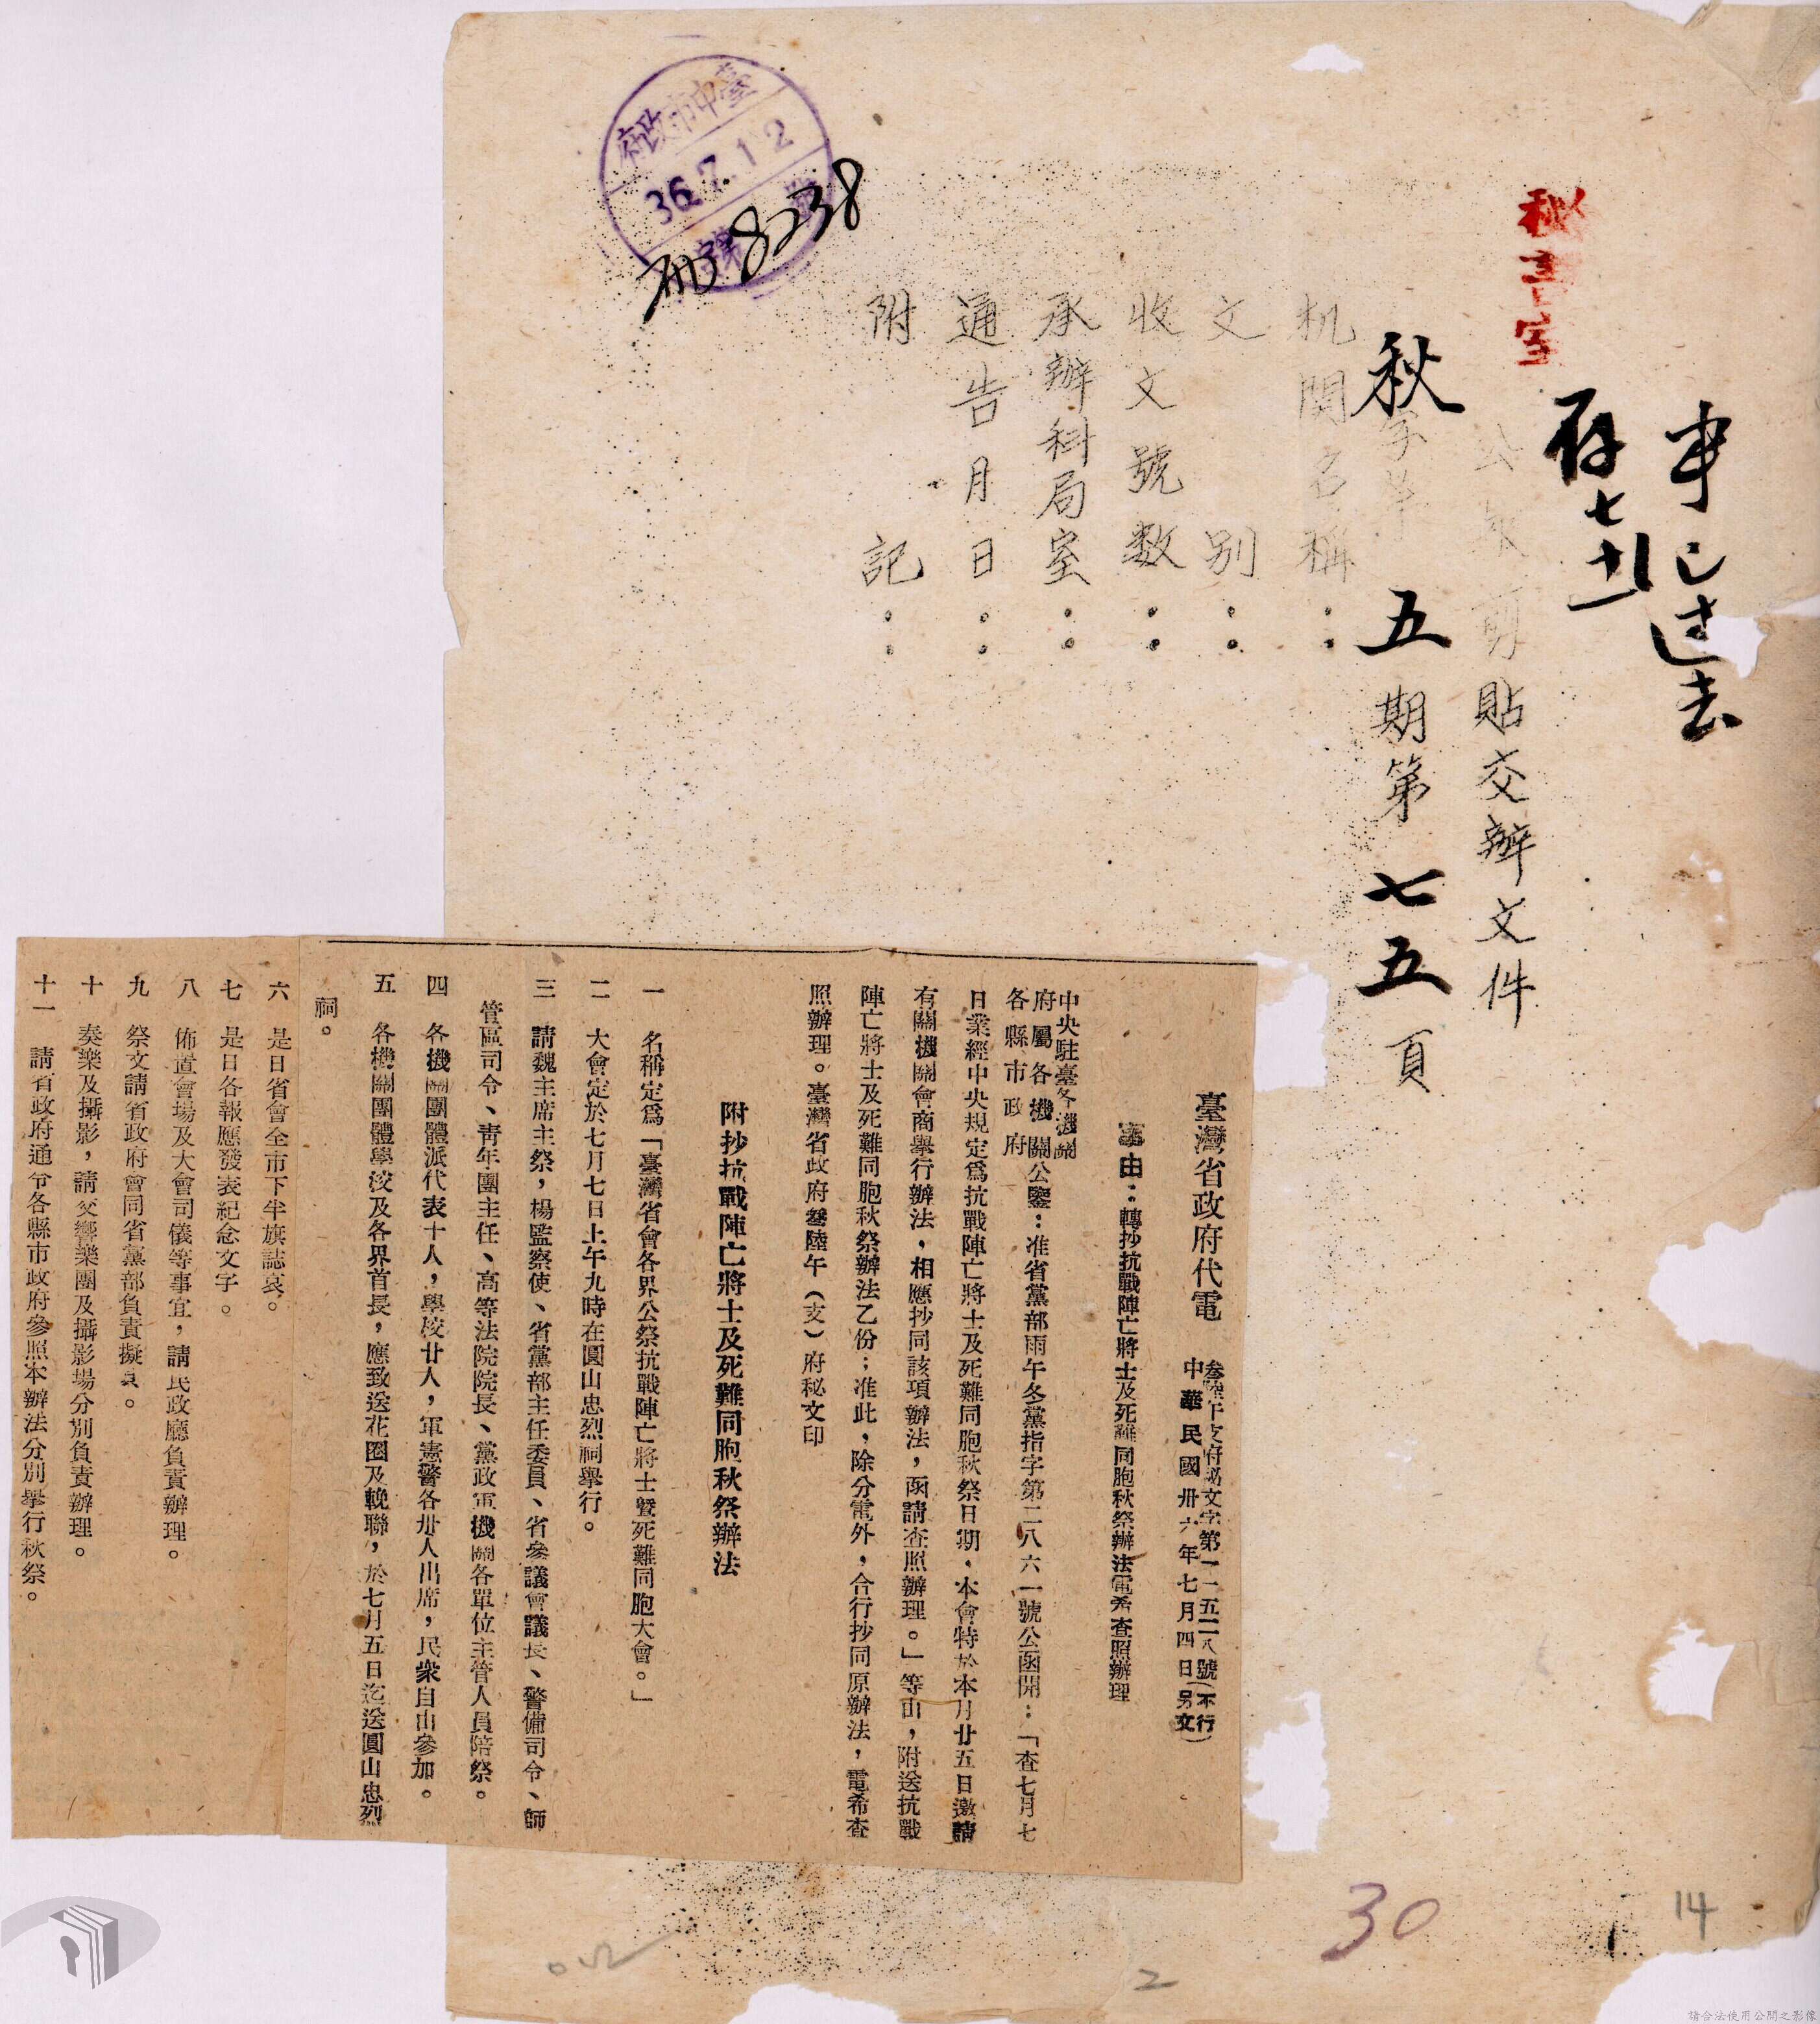 事已过去
存 七 十一
秘書室
公報剪貼交辦文件
秋字第五期第七五頁
机関名稱：
文別：
收文號数：
承辦科局室：
通告月日：
附記：
臺中市政府
36.7.12
8238
臺灣省政府代電
叁陸午支府秘文字第一一五二八號（不另行文）
中華民國卅六年七月四日
事由：轉抄抗戰陣亡將士及死難同胞秋祭辦法電希查照辦理
中央駐臺各機關
府屬各機關
各縣市政府
公鑒：准省黨部雨午冬黨指字第二八六一號公函開：「查七月七
日業經中央規定爲抗戰陣亡將士及死難同胞秋祭日期，本會特於本月廿五日邀請
有關機關會商舉行辦法，相應抄同該項辦法，函請查照辦理。」等由，附送抗戰
陣亡將士及死難同胞秋祭辦法乙份；准此，除分電外，合行抄同原辦法，電希查
照辦理。臺灣省政府叁陸午（支）府秘文印
附抄抗戰陣亡將士及死難同胞秋祭辦法
一 名稱定爲「臺灣省會各界公祭抗戰陣亡將士曁死難同胞大會。」
二 大會定於七月七日上午九時在圓山忠烈祠舉行。
三 請魏主席主祭，楊監察使、省黨部主任委員、省參議會議長、警備司令、師
管區司令、靑年團主任、高等法院院長、黨政軍機關各單位主管人員陪祭。
四 各機關團體派代表十人，學校廿人，軍憲警各卅人出席，民衆自由參加。
五 各機關團體學校及各界首長，應致送花圈及輓聯，於七月五日迄送圓山忠烈
祠。
六 是日省會全市下半旗誌哀。
七 是日各報應發表紀念文字。
八 佈置會場及大會司儀等事宜，請民政廳負責辦理。
九 祭文請省政府會同省黨部負責擬具。
十 奏樂及攝影，請交響樂團及攝影場分別負責辦理。
十一 請省政府通令各縣市政府參照本辦法分別舉行秋祭。
30
14
2
請合法使用公開之影像